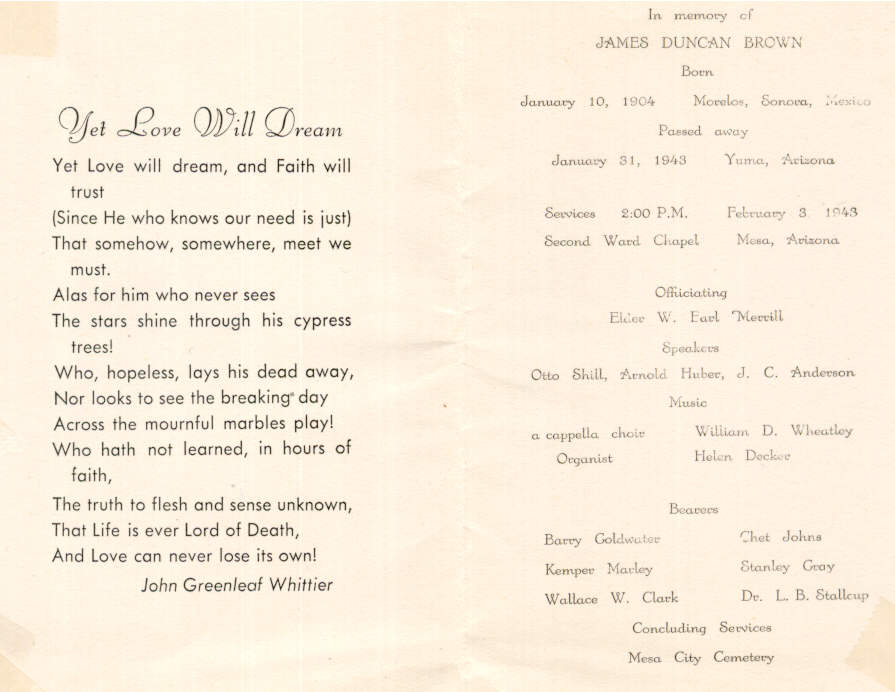 Yet Love Will Dream
Yet Love will dream, and Faith will
trust
(Since He who knows our need is just)
That somehow, somewhere, meet we
must.
Alas for him who never sees
The stars shine through his cypress
trees!
Who, hopeless, lays his dead away,
Nor looks to see the breaking day
Across the mournful marbles play!
Who hath not learned, in hours of
faith,
The truth to flesh and sense unknown,
That Life is ever Lord of Death,
And Love can never lose its own!
John Greenleaf Whittier
In memory of
JAMES DUNCAN BROWN
Born
January 10, 1904 Morelos, Sonora, Mexico
Passed away
January 31, 1943 Yuma, Arizona
Services 2:00 P.M. February 3 1943
Second Ward Chapel Mesa, Arizona
Officiating
Elder W. Earl Merrill
Speakers
Otto Shill, Arnold Huber, J. C. Anderson
Music
a cappella choir William D. Wheatley
Organist Helen Decker
Bearers
Barry Goldwater Chet Johns
Kemper Marley Stanley Gray
Wallace W. Clark Dr. L. B. Stallcup
Concluding Services
Mesa City Cemetery